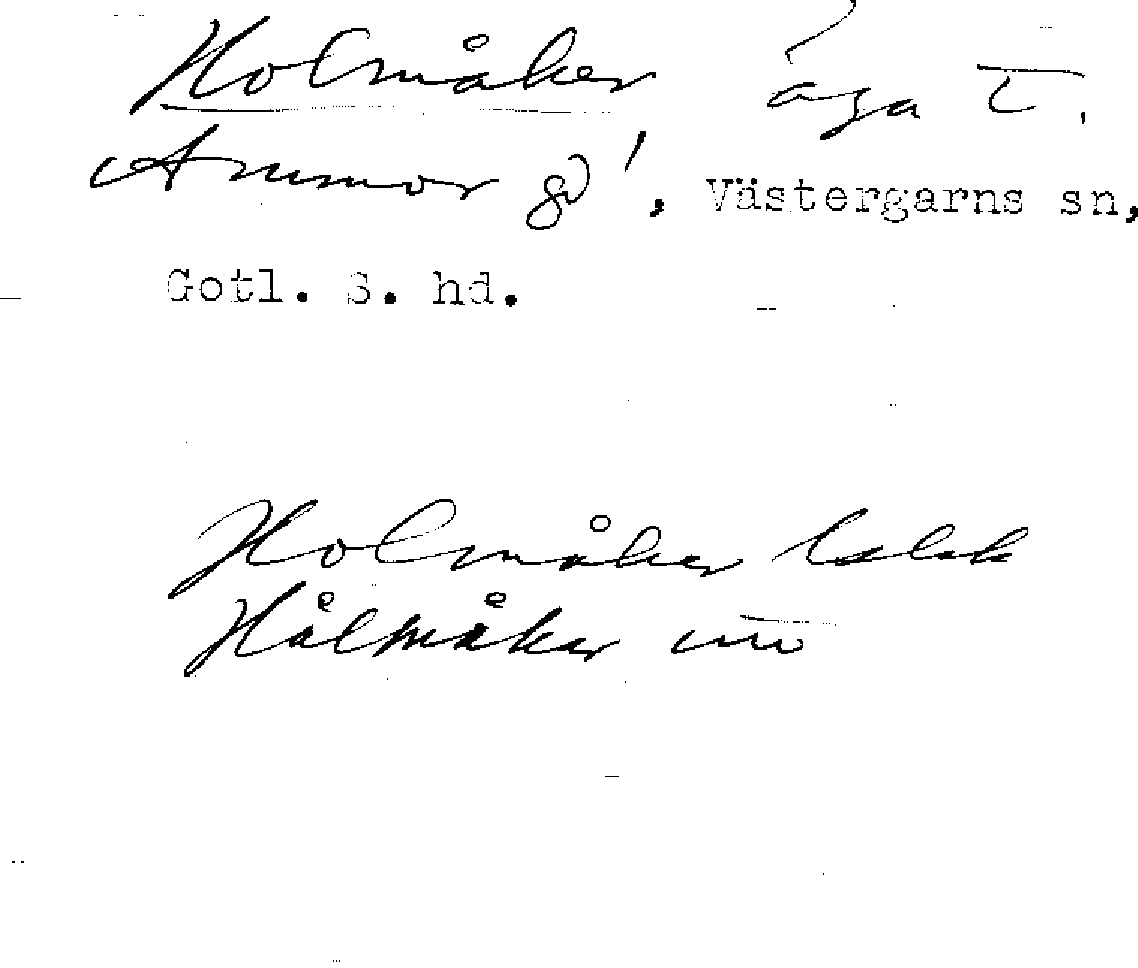 Holmåker äga t.
Ammor gd, Västergarns sn,
Gotl. S. hd.
Holmåker
Hålmåker